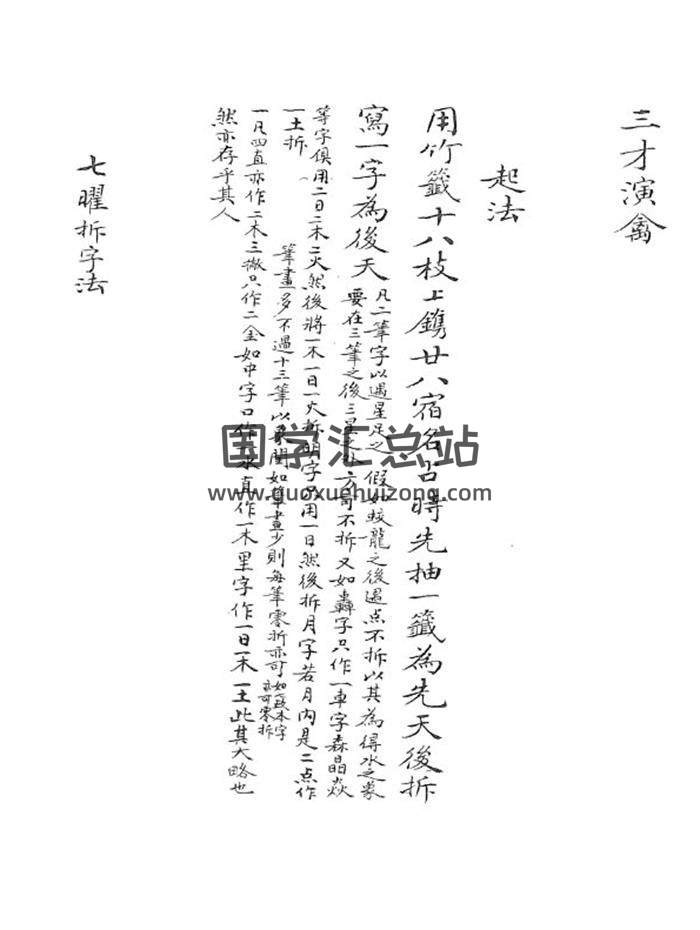 三才演禽
起法
用竹籤十八枝上鐫廿八宿名占時先抽一籤為先天後拆
寫一字為後天
凡二筆字以遇星足之 假如蛟龍之後遇点不拆以其為得水之象
要在三筆之後三星之外方可不拆又如轟字只作一車字森晶焱
等字俱用二日二木二火然後將一木一日一火拆明字只用一日然後拆月字若月内是二点作
一土拆
筆畫多不過十三筆以象閏如筆畫少則每筆零拆亦可
如一本字
亦可零拆
一凡四直亦作二木三撇只作二金如中字口作一水直作一木里字作一日一木一土此其大略也
然亦存乎其人
七曜拆字法
国学汇总站
www.guoxuehuizong.com